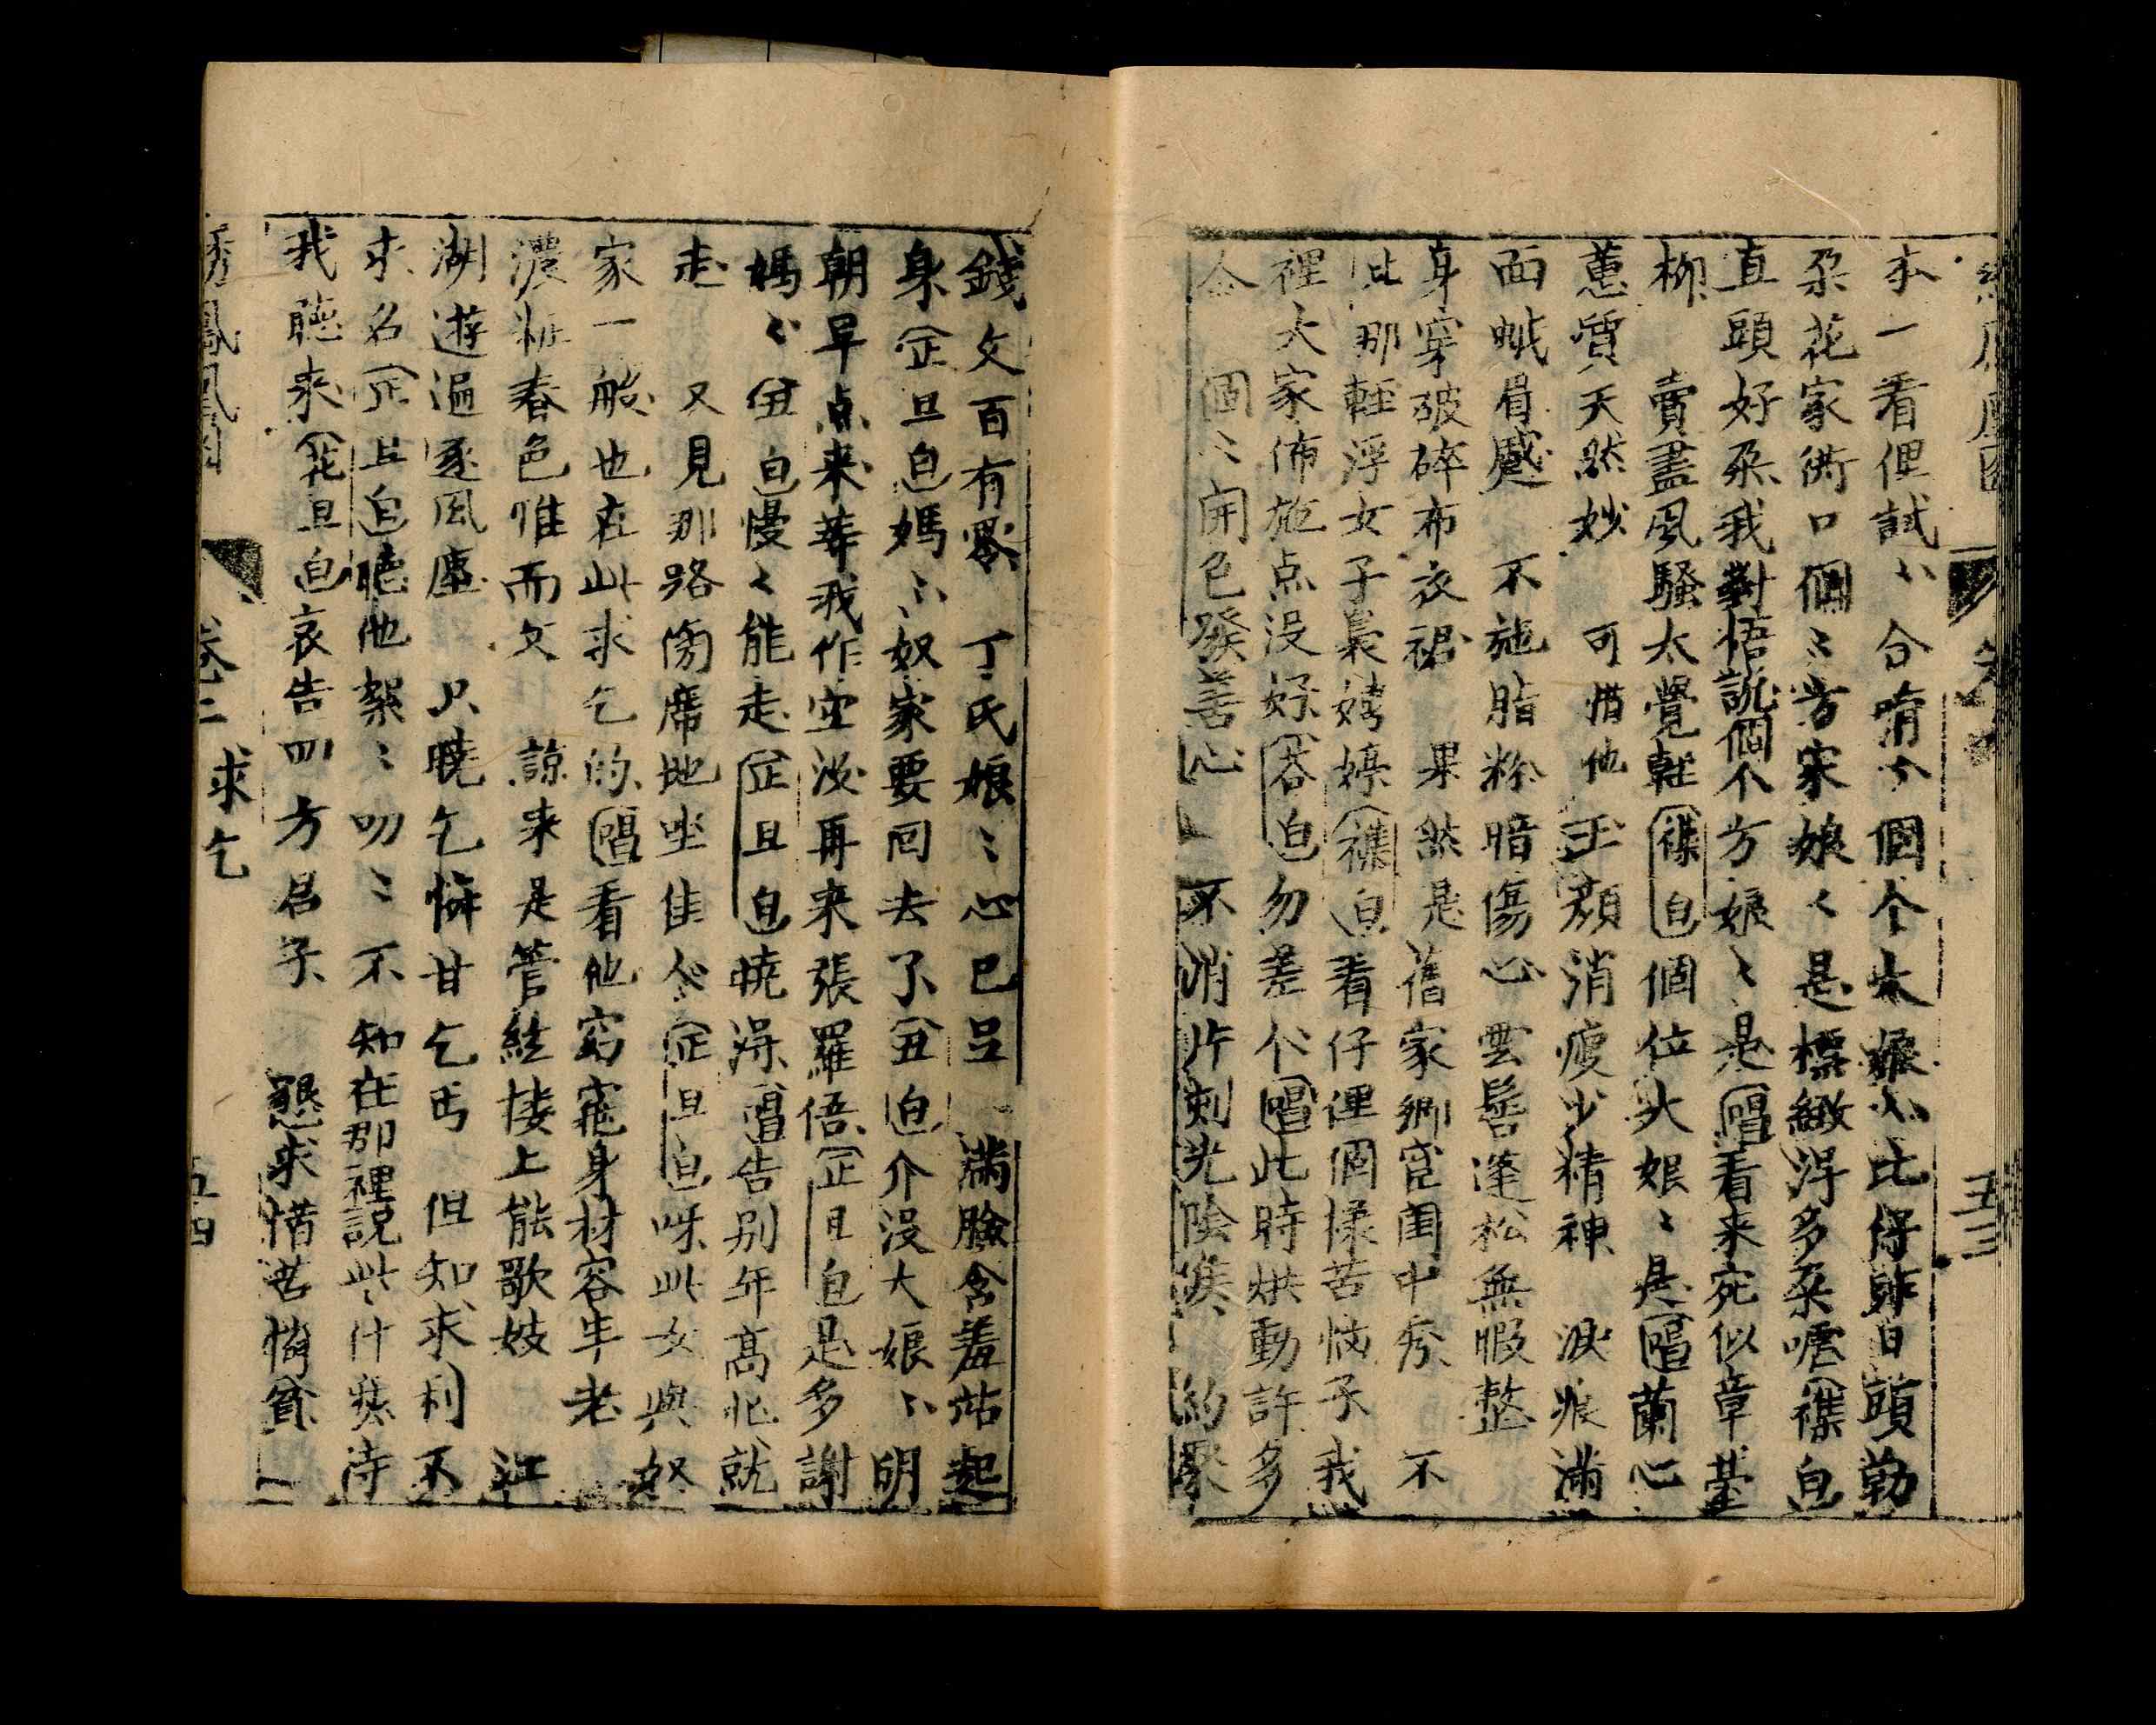 本一看俚試〻合唷个個个大娘〻比得昨日頭勒
朶花家衖口個〻方家娘〻是標緻得多朶嚡(襍白
直頭好朶我對悟説個个方娘〻是(唱看来宛似章臺
柳 賣盡風騷太覺軽(襍白個位大娘〻是(唱蘭心
蕙質天然妙 可惜他玉顏消瘦少精神 淚痕滿
面蛾眉蹙 不施脂粉暗傷心 雲髻蓬松無暇整
身穿破碎布衣裙 果然是舊家鄉宦閨中秀 不
比那軽浮女子裊娉婷(襍白看仔俚個樣苦惱子我
裡大家佈施点没好(各白勿差个(唱此時烘動許多
人 個〻開包發善心 不消片刻光陰集 約聚
五三
錢文百有零 丁氏娘〻心已足 滿臉含羞站起
身(正旦白媽〻奴家要回去了(丑白介没大娘〻明
朝早点来葬我作空没再来張羅俉(正旦白是多謝
媽〻(丑白慢〻能走(正旦白曉得(唱告别年高忙就
走 又見那路傍席地坐佳人(正旦白呀此女與奴
家一般也在此求乞的(唱看他窈窕身材容年老
濃粧春色雅而文 諒来是管絃楼上能歌妓 江
湖遊遍逐風塵 只曉乞憐甘乞丐 但知求利不
求名(正旦白聽他絮〻叨〻不知在那裡説些什麽待
我聽来(花旦白哀告四方君子 懇求惜苦憐貧
繡鳳凰圖 卷二 求乞 五四